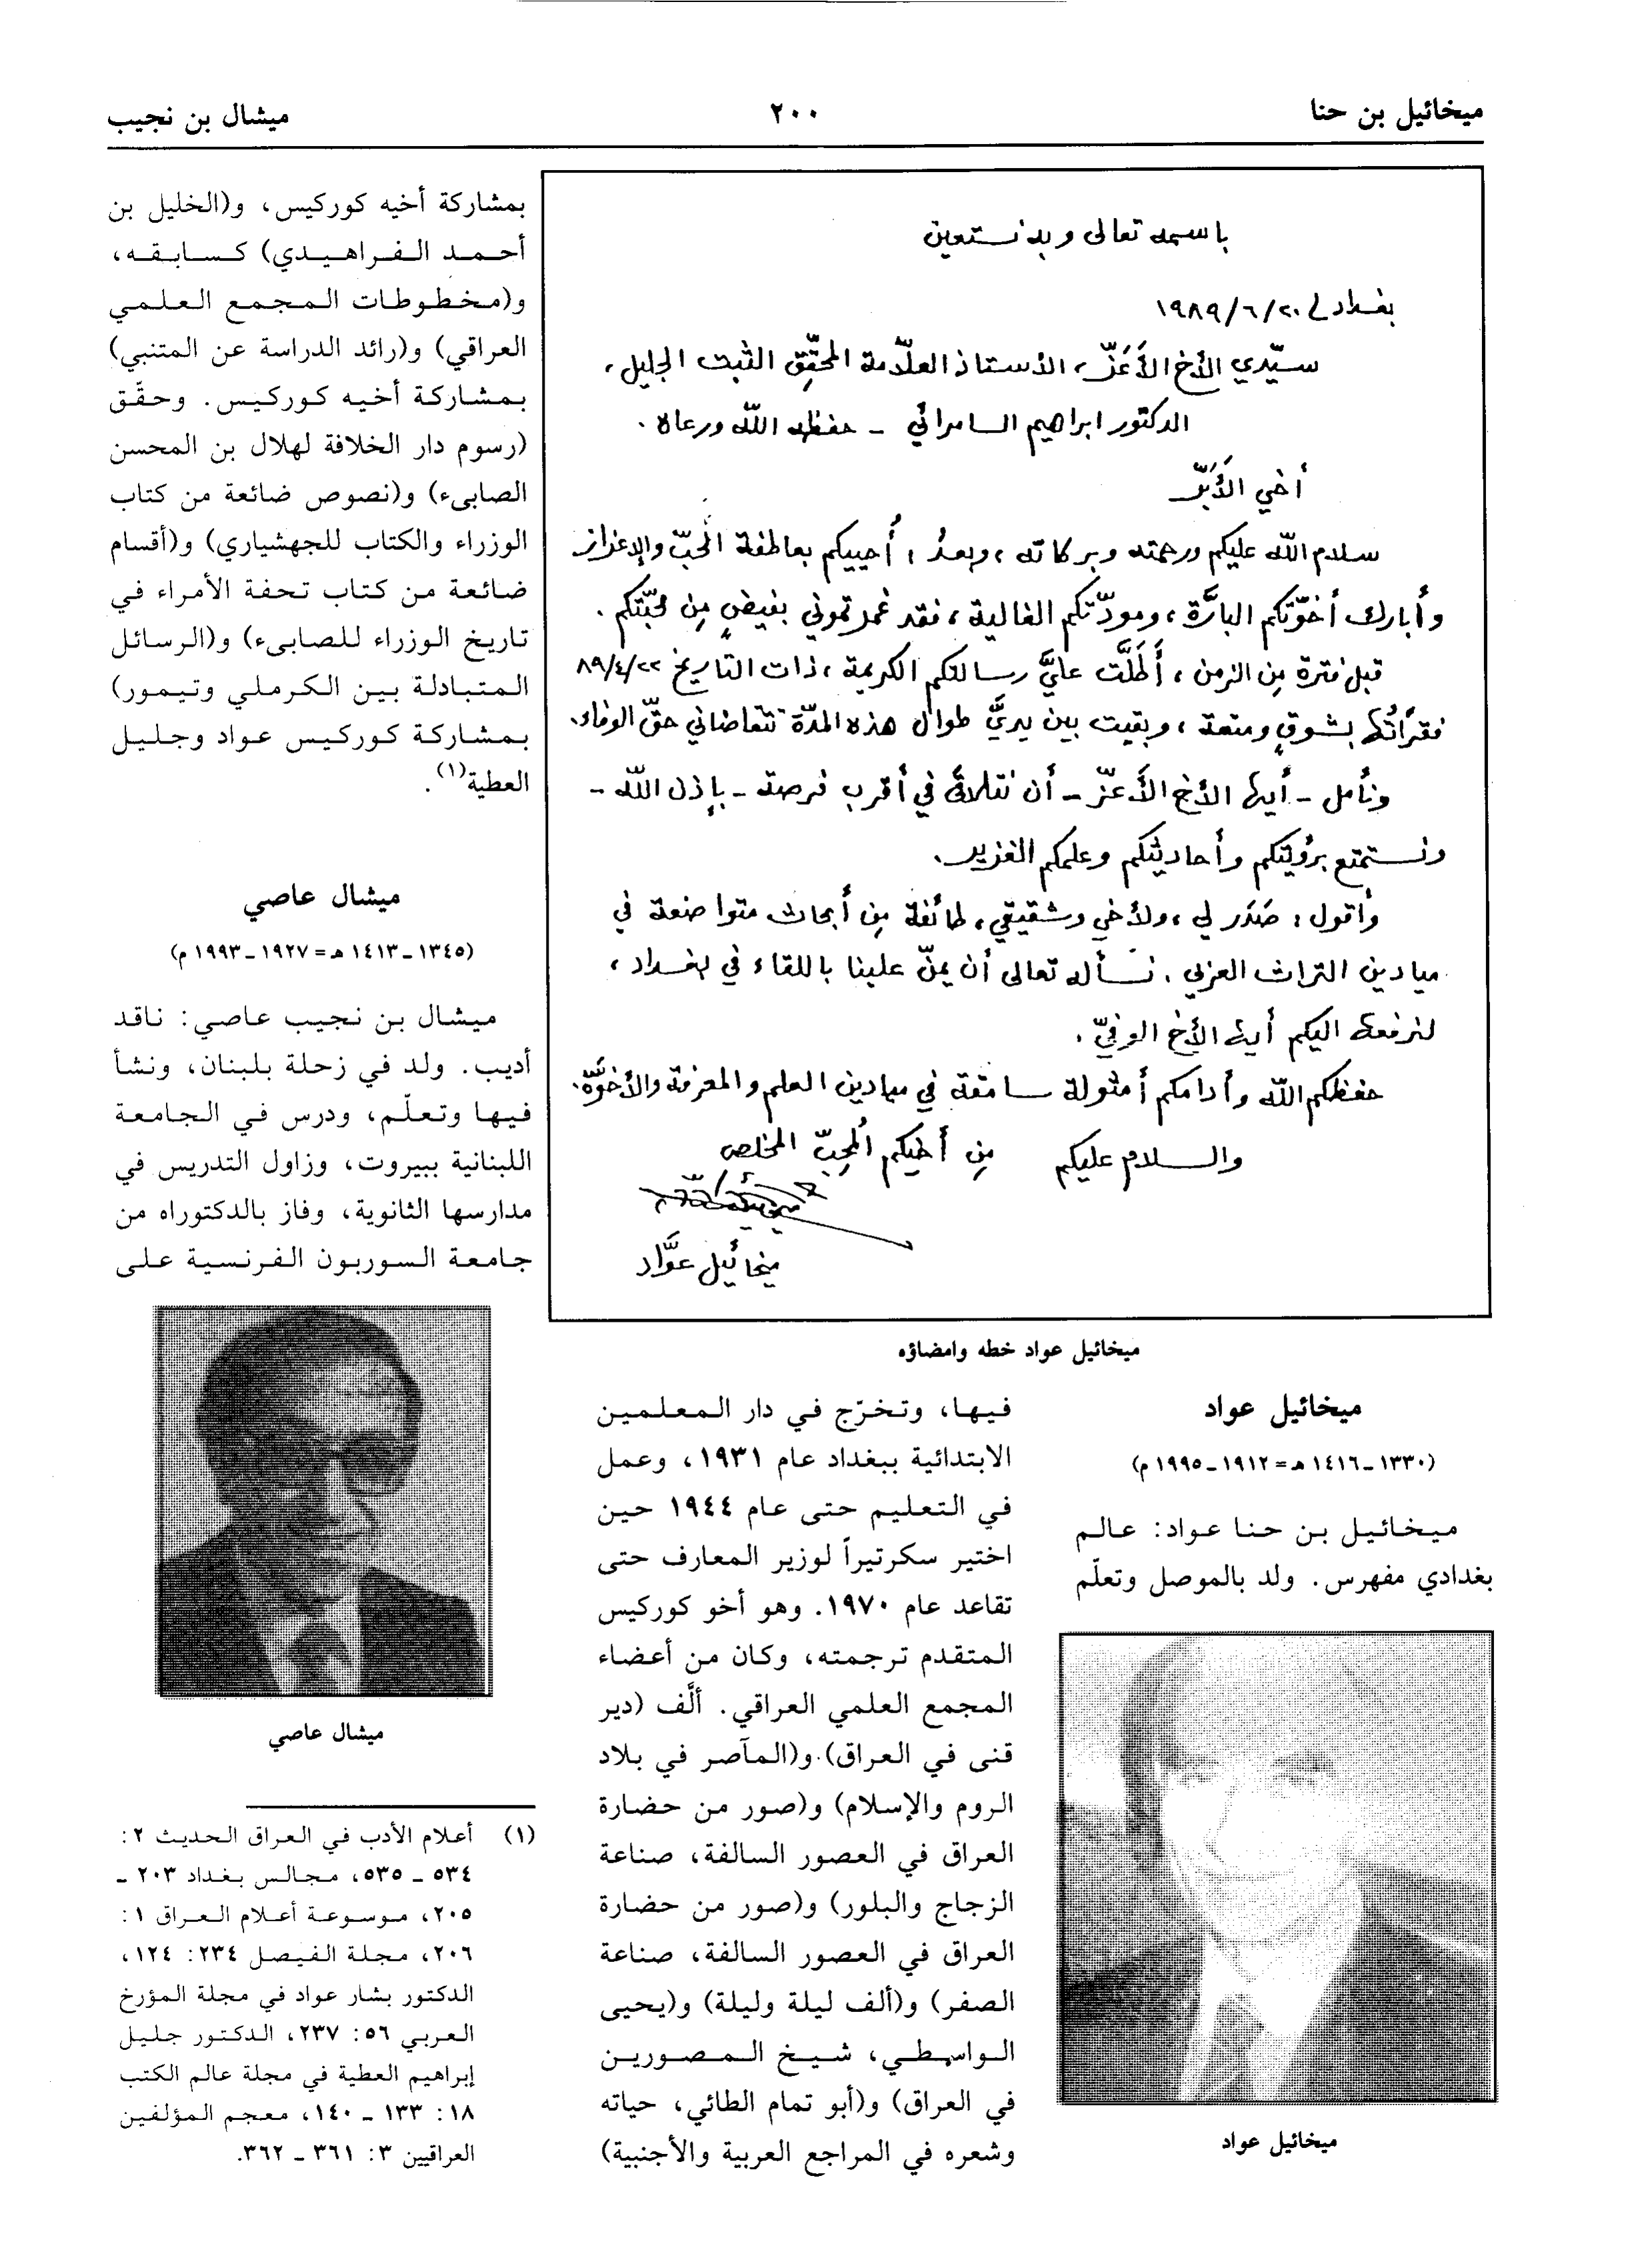 ميخائيل بن حنا
٢٠٠
ميشال بن نجيب
باسمه تعالى وبه نستعين
بغداد في ١٩٨٩/٦/٢٠
سيّدي الأخ الأَعَزّ، الأستاذ العلّامة المحقّق الثبت الجليل،
الدكتور ابراهيم السامرائي - حفظه اللّه ورعاه.
أخي الأَبَرّ
سلام اللّه عليكم ورحمته وبركاته، وبعدُ، أُحييكم بعاطفة الحُبّ والإعزاز
وأُبارك أخوّتكم البارَّة، ومودّتكم الغالية، فقد غمرتموني بفيضٍ مِن محبّتكم.
قبل فترة مِن الزمن، أَطَلَّت عليَّ رسالتكم الكريمة، ذات التاريخ ٨٩/٤/٢٢
فقرَأتُها بشوقٍ ومتعة، وبقيت بين يديَّ طوال هذه المدّة تتقاضاني حقّ الوفاء.
ونأمل - أيها الأخ الأَعزّ - أن نتلاقى في أقرب فرصة - بإذن اللّه -
ونستمتع برؤيتكم وأحاديثكم وعلمكم الغزير.
وأقول: صَدَر لي، ولأخي وشقيقي، طائفة مِن أبحاث متواضعة في
ميادين التراث العربي. نسأله تعالى أن يمنّ علينا باللقاء في بغداد،
لنرفعها اليكم أيها الأخ الوفيّ.
حفظكم اللّه وأدامكم أمثولة سامقة في ميادين العلم والمعرفة والأخوّة.
والسلام عليكم من أخيكم المُحِبّ المخلص
ميخائيل عوَّاد
ميخائيل عواد خطه وامضاؤه
ميخائيل عواد
(١٣٣٠-١٤١٦ هـ = ١٩١٢-١٩٩٥ م)
ميخائيل بن حنا عواد: عالم
بغدادي مفهرس. ولد بالموصل وتعلّم
ميخائيل عواد
فيها، وتخرّج في دار المعلمين
الابتدائية ببغداد عام ١٩٣١، وعمل
في التعليم حتى عام ١٩٤٤ حين
اختير سكرتيراً لوزير المعارف حتى
تقاعد عام ١٩٧٠. وهو أخو كوركيس
المتقدم ترجمته، وكان من أعضاء
المجمع العلمي العراقي. ألَّف (دير
قنى في العراق) و(المآصر في بلاد
الروم والإسلام) و(صور من حضارة
العراق في العصور السالفة، صناعة
الزجاج والبلور) و(صور من حضارة
العراق في العصور السالفة، صناعة
الصفر) و(ألف ليلة وليلة) و(يحيى
الواسطي، شيخ المصورين
في العراق) و(أبو تمام الطائي، حياته
وشعره في المراجع العربية والأجنبية)
بمشاركة أخيه كوركيس، و(الخليل بن
أحمد الفراهيدي) كسابقه،
و(مخطوطات المجمع العلمي
العراقي) و(رائد الدراسة عن المتنبي)
بمشاركة أخيه كوركيس. وحقّق
(رسوم دار الخلافة لهلال بن المحسن
الصابىء) و(نصوص ضائعة من كتاب
الوزراء والكتاب للجهشياري) و(أقسام
ضائعة من كتاب تحفة الأمراء في
تاريخ الوزراء للصابىء) و(الرسائل
المتبادلة بين الكرملي وتيمور)
بمشاركة كوركيس عواد وجليل
العطية(١).
ميشال عاصي
(١٣٤٥-١٤١٣ هـ = ١٩٢٧-١٩٩٣ م)
ميشال بن نجيب عاصي: ناقد
أديب. ولد في زحلة بلبنان، ونشأ
فيها وتعلّم، ودرس في الجامعة
اللبنانية ببيروت، وزاول التدريس في
مدارسها الثانوية، وفاز بالدكتوراه من
جامعة السوربون الفرنسية على
ميشال عاصي
(١) أعلام الأدب في العراق الحديث ٢:
٥٣٤ - ٥٣٥، مجالس بغداد ٢٠٣ -
٢٠٥، موسوعة أعلام العراق ١:
٢٠٦، مجلة الفيصل ٢٣٤: ١٢٤،
الدكتور بشار عواد في مجلة المؤرخ
العربي ٥٦: ٢٣٧، الدكتور جليل
إبراهيم العطية في مجلة عالم الكتب
١٨: ١٣٣ - ١٤٠، معجم المؤلفين
العراقيين ٣: ٣٦١ - ٣٦٢.